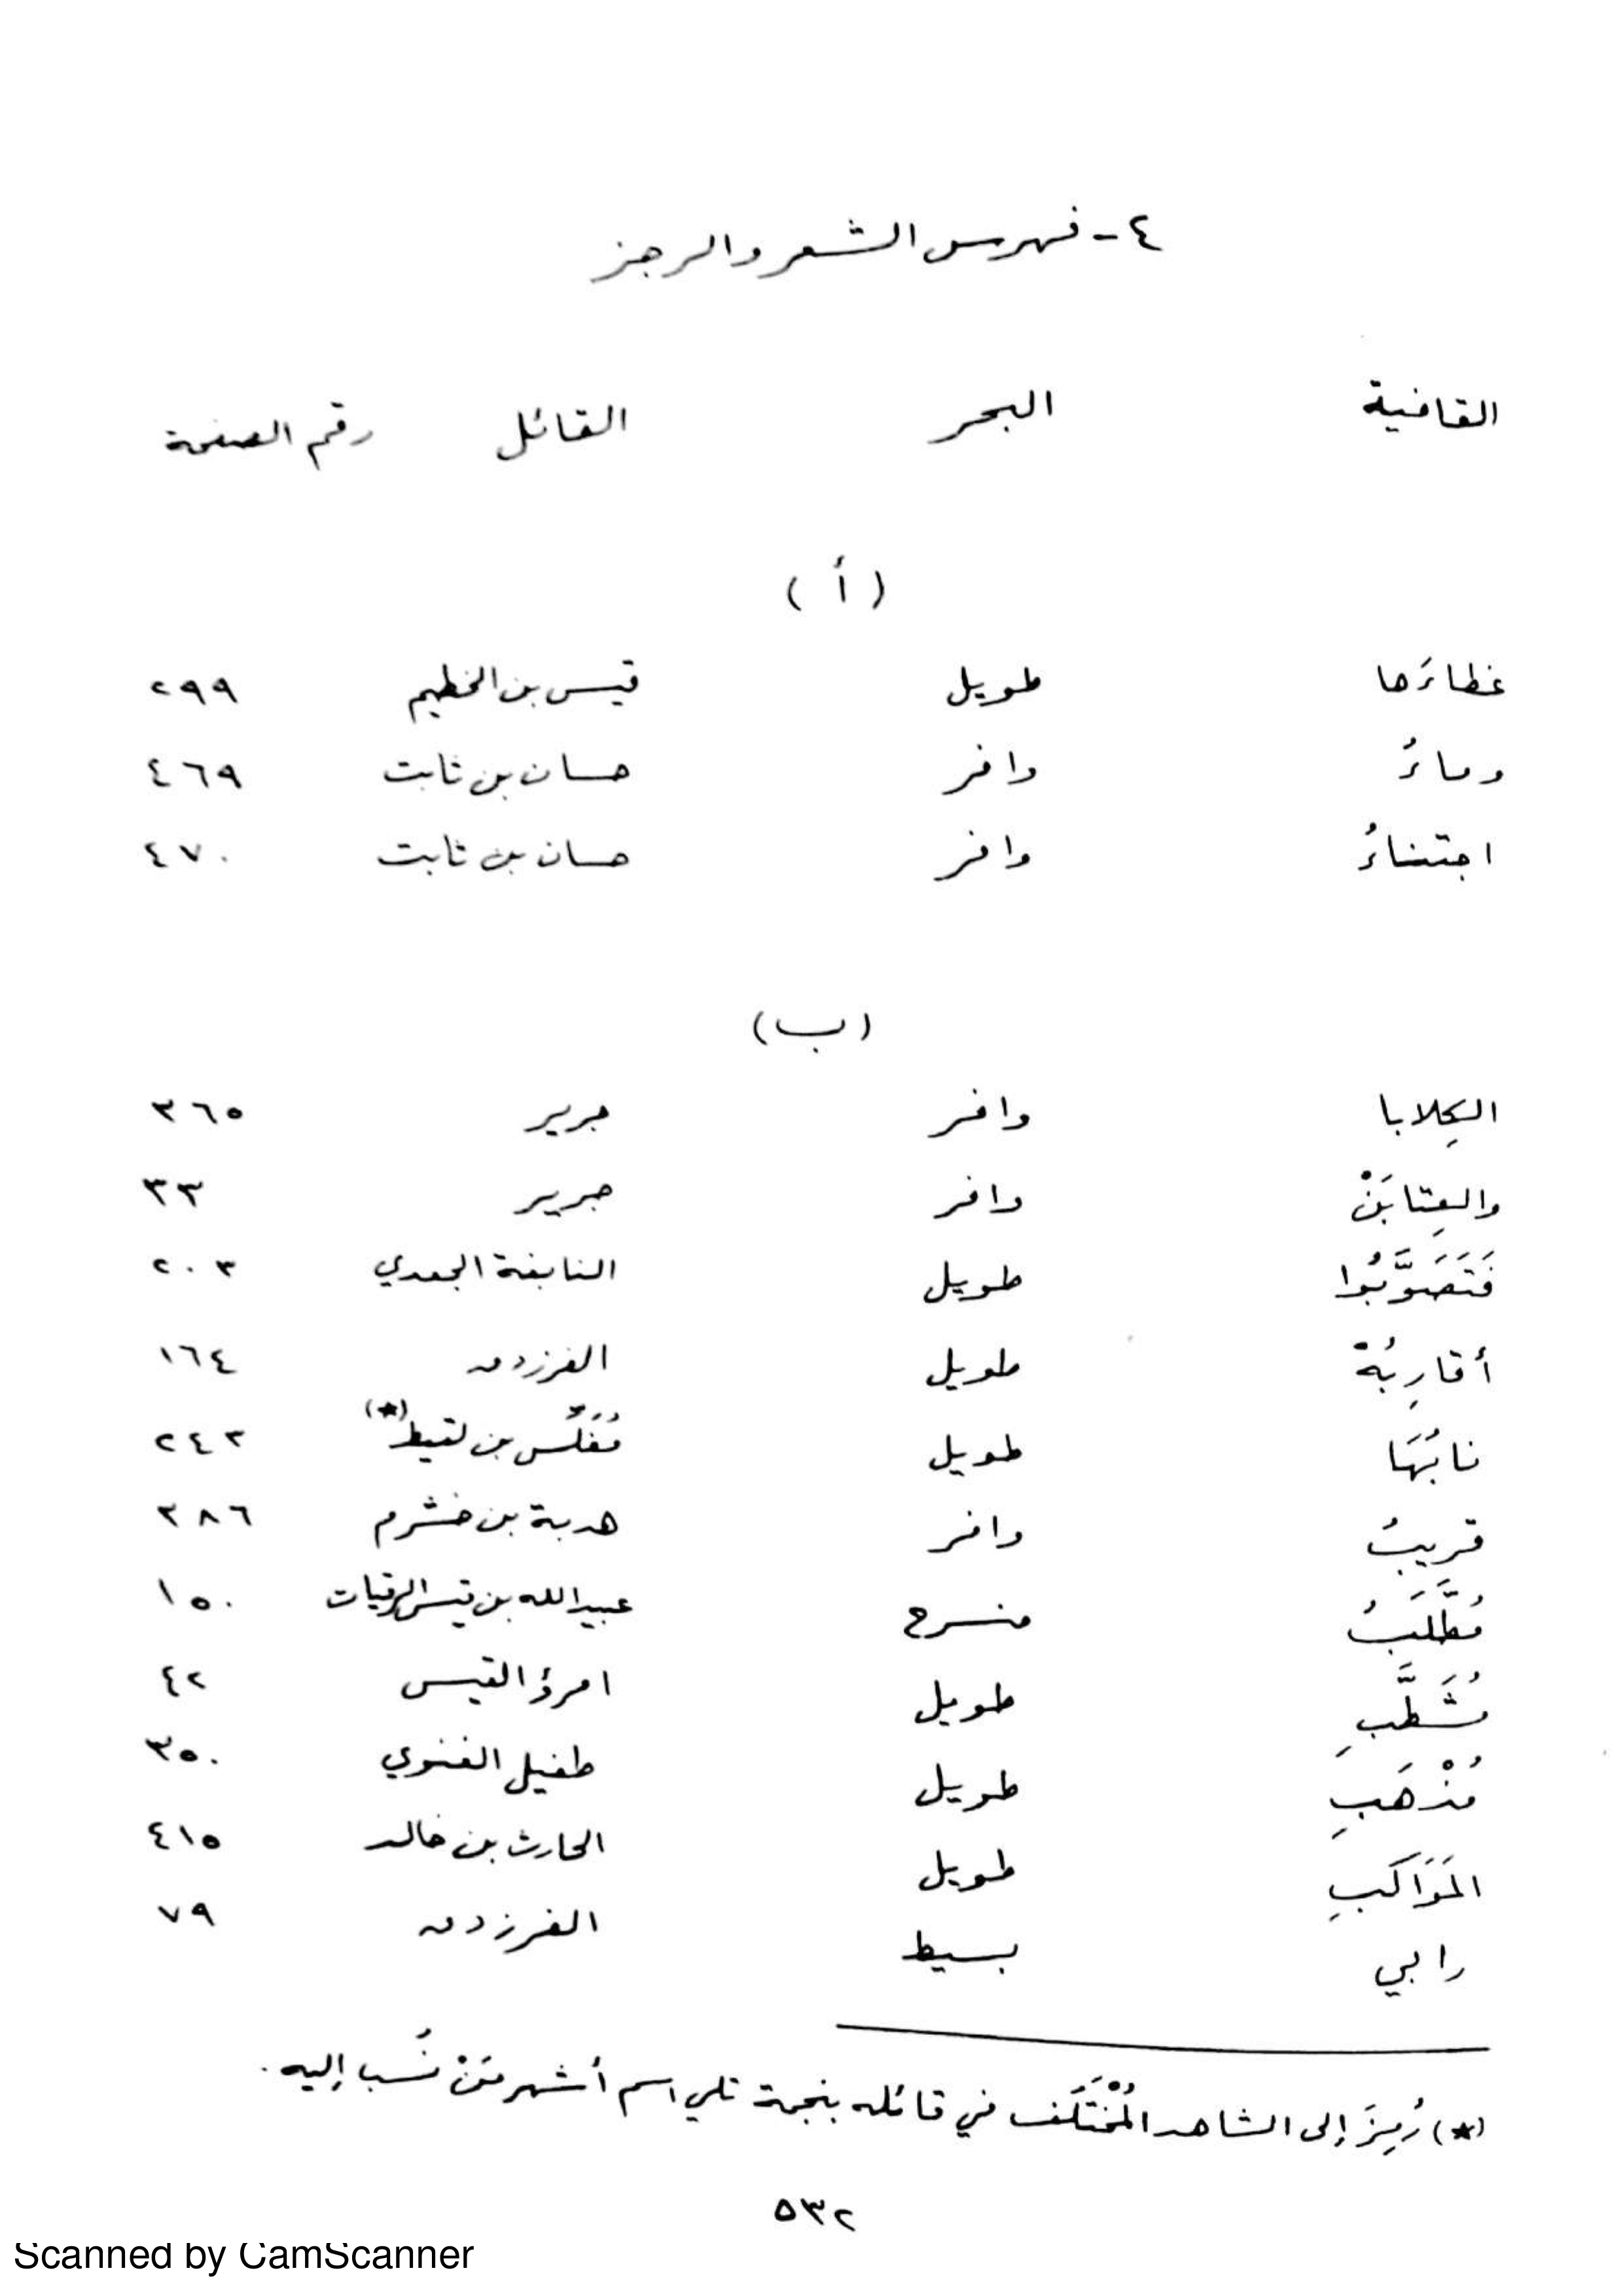 ٤ - فهرس الشعر والرجز
القافية البحر القائل رقم الصفحة
( أ )
غطاءَها طويل قيس بن الخطيم ٢٩٩
وماءُ وافر حسان بن ثابت ٤٦٩
اجتناءُ وافر حسان بن ثابت ٤٧٠
(ب)
الكِلابا وافر جرير ٣٦٥
والعِتابَنْ وافر جرير ٣٣
فَتَصَوَّبُوا طويل النابغة الجعدي ٢٠٣
أقارِبُهْ طويل الفرزدق ١٦٤
نابُهَا طويل مُغَلِّس بن لقيط(★) ٢٤٣
قريبُ وافر هدبة بن خشرم ٣٨٦
مُطَّلَبُ منسرح عبيدالله بن قيس الرقيات ١٥٠
مُشَطَّبِ طويل امرؤ القيس ٤٢
مُذْهَبِ طويل طفيل الغنوي ٣٥٠
المَوَاكَبِ طويل الحارث بن خالد ٤١٥
رابي بسيط الفرزدق ٧٩
(★) رُمِزَ إلى الشاهد المُخْتَلَف في قائله بنجمة تلي اسم أشهر مَنْ نُسب إليه .
٥٣٢
Scanned by CamScanner